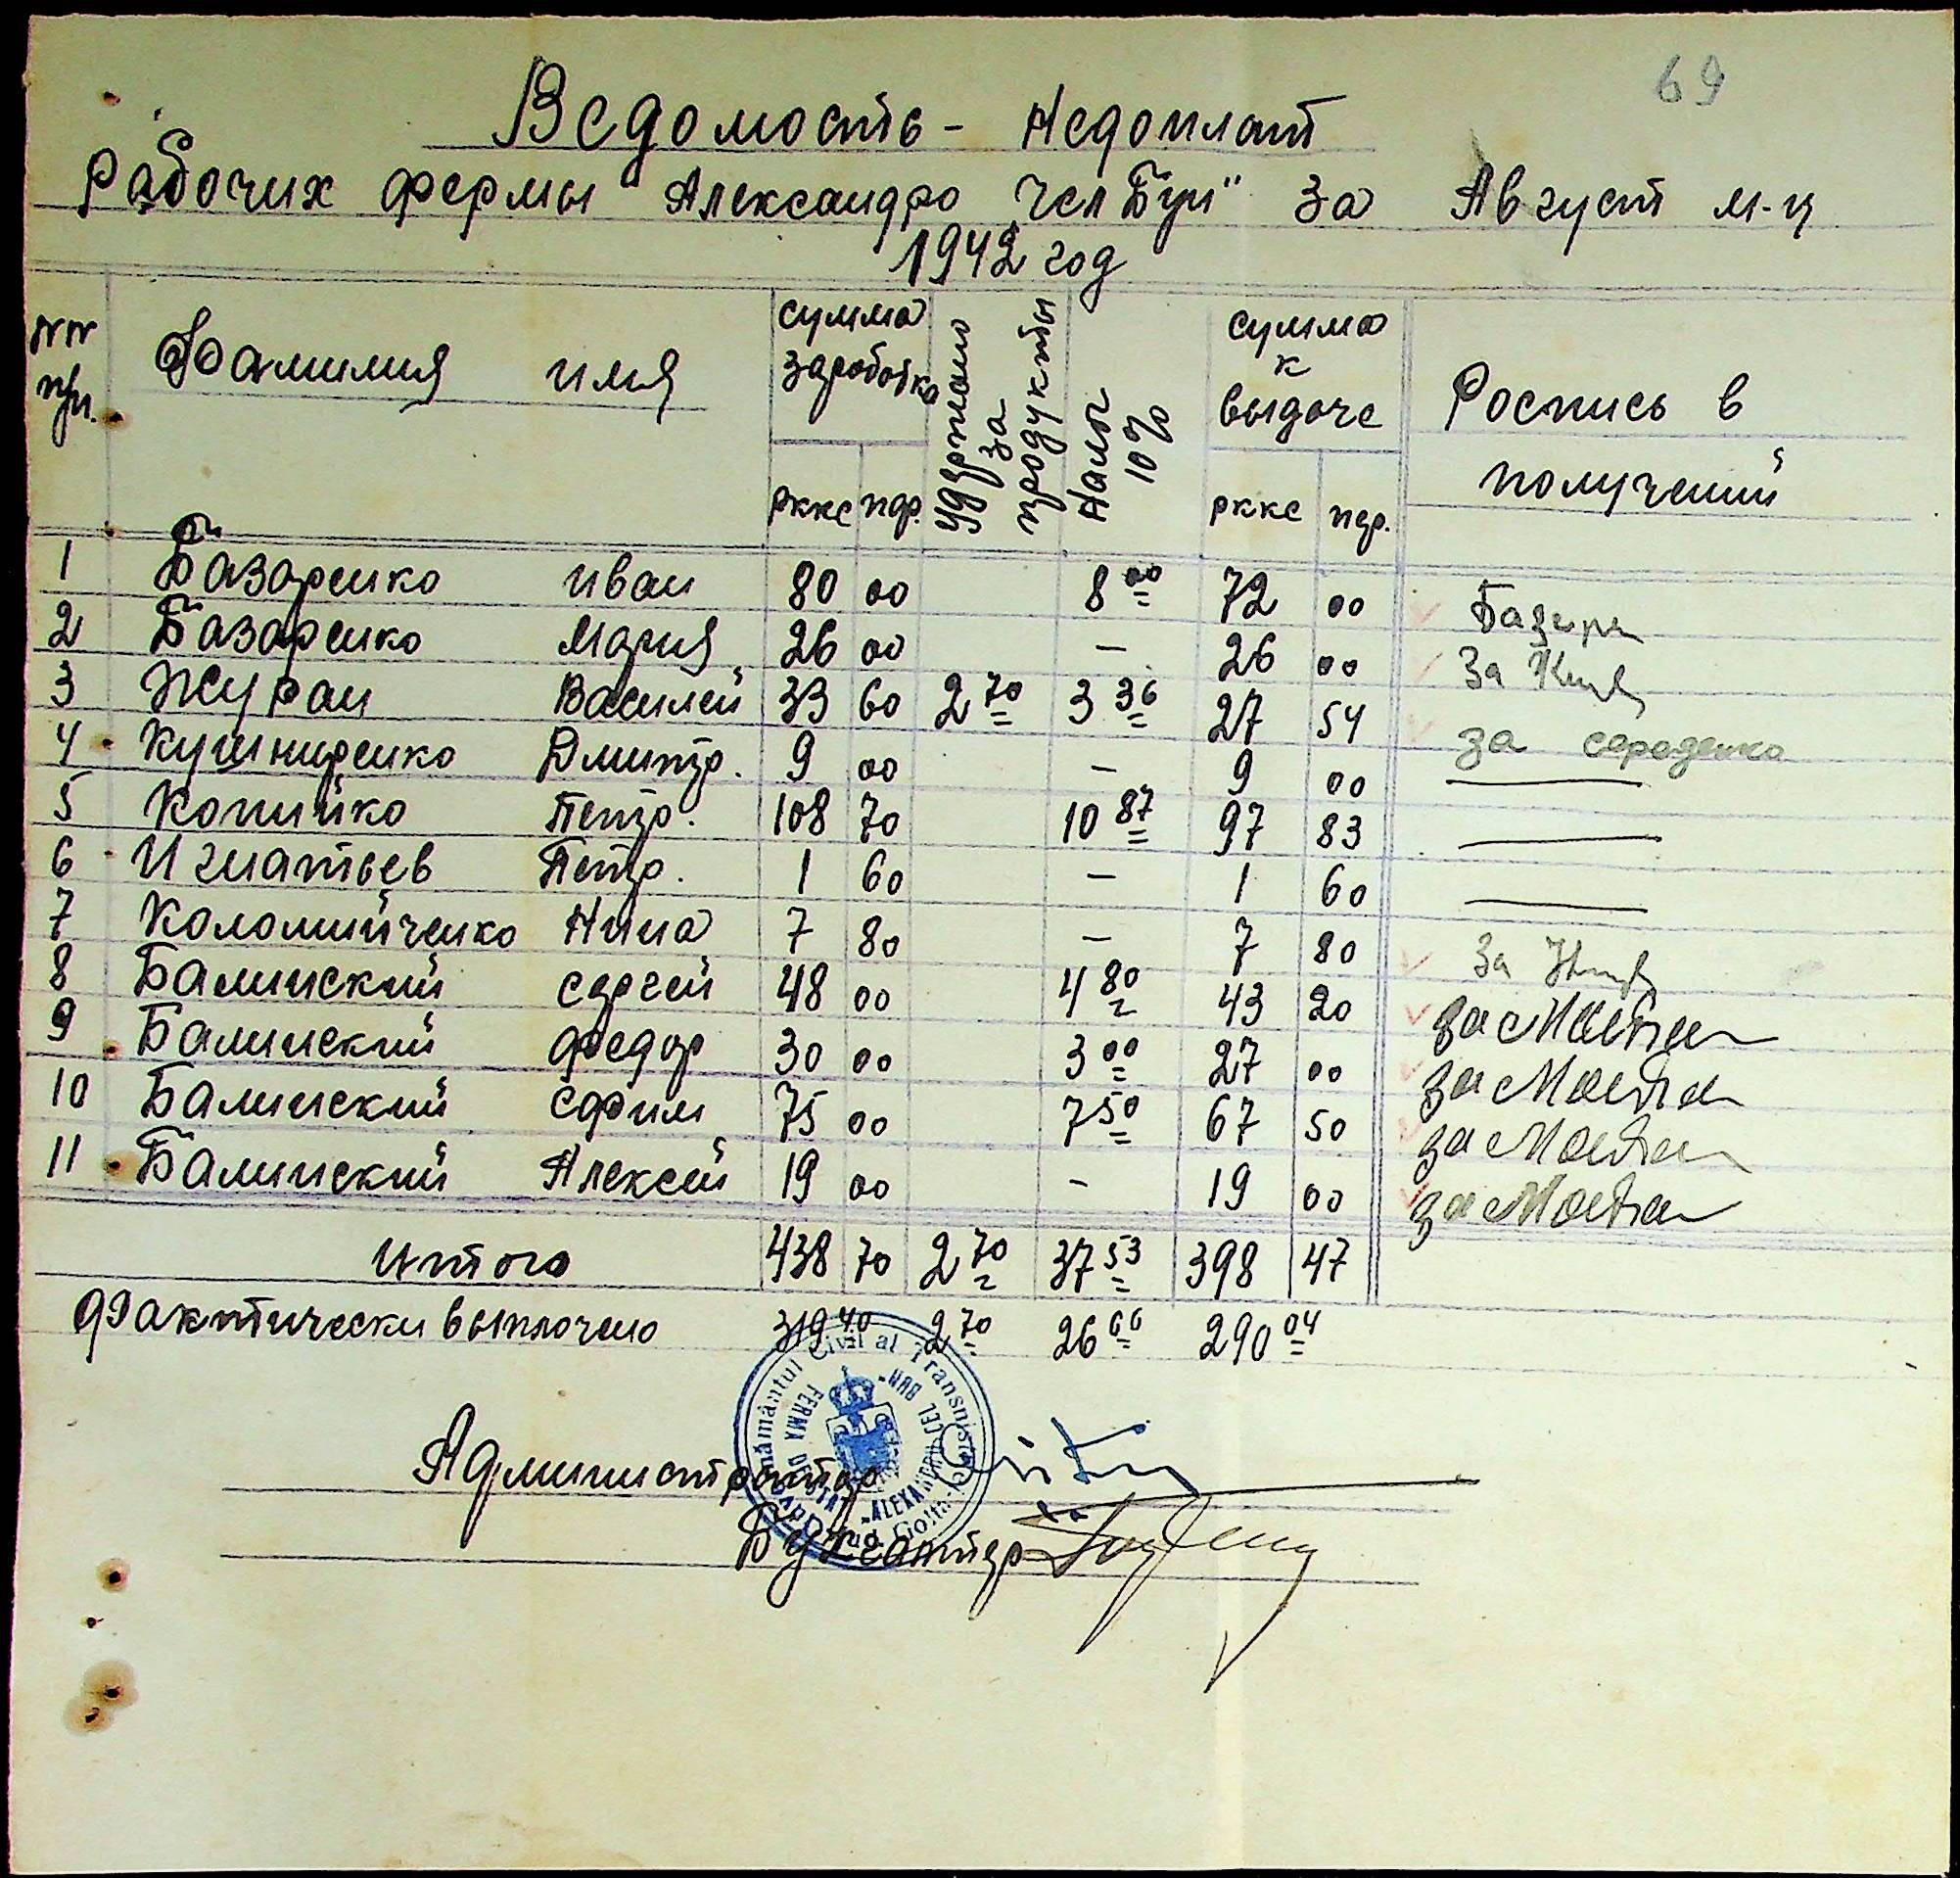 69
Ведомость - Недоплат
Рабочих фермы "Александро Чел Бун" за Август м-ц
1942 год
NN п/п. Фамилия имя сумма заработка Удержано за продукты Налог 10% сумма к выдаче Роспись в получений
рккс пф. рккс пф.
1 Базаренко иван 80 00 8 00 72 00
2 Базаренко Мария 26 00 — 26 00 за
3 Журан Василей 33 60 2 70 3 36 27 54 за
4 Кушниренко Дмитр. 9 00 — 9 00 —
5 Копийко Петр. 108 70 10 87 97 83 —
6 Игнатьев Петр. 1 60 — 1 60 —
7 Коломийченко Нина 7 80 — 7 80 за
8 Балинский сергей 48 00 4 80 43 20 за
9 Балинский федор 30 00 3 00 27 00 за
10 Балинский ефим 75 00 7 50 67 50 за
11 Балинский Алексей 19 00 - 19 00 за
итого 438 70 2 70 37 53 398 47
фактически выплочено 319 40 2 70 26 66 290 04
Civil al Transnistriei
FERMA DE STAT "ALEXANDRU CEL BUN"
Golta
Администратор
Бухгалтер